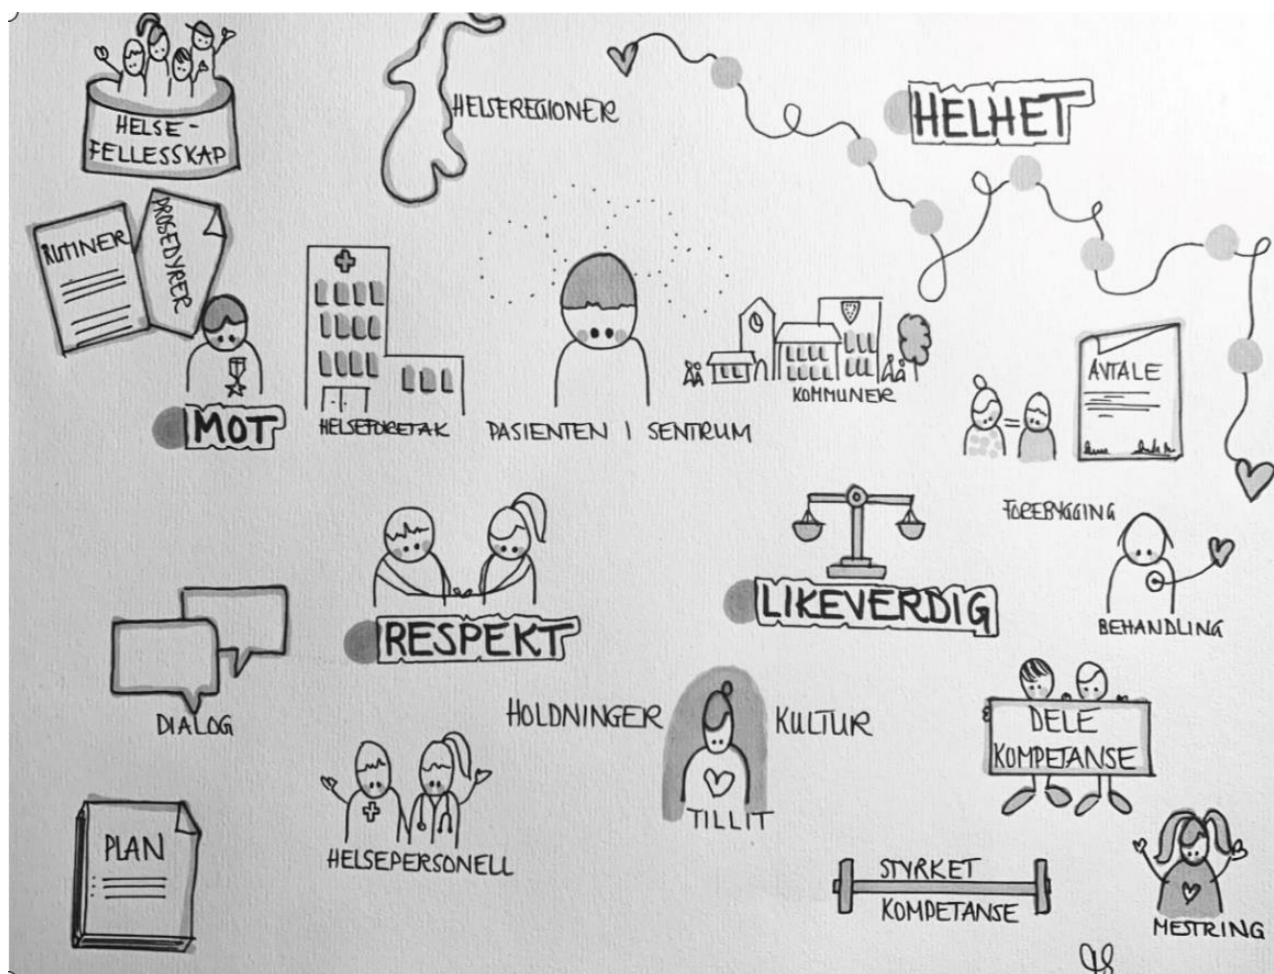 HELSE-
FELLESSKAP
HELSEREGIONER
HELHET
RUTINER
PROSEDYRER
MOT
HELSEFORETAK
PASIENTEN I SENTRUM
KOMMUNER
=
AVTALE
FOREBYGGING
BEHANDLING
RESPEKT
LIKEVERDIG
DIALOG
HOLDNINGER
KULTUR
TILLIT
DELE
KOMPETANSE
HELSEPERSONELL
PLAN
STYRKET
KOMPETANSE
MESTRING